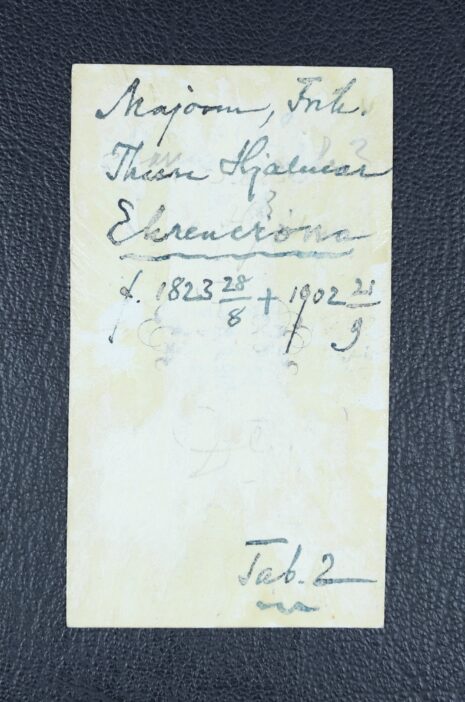 Majoren, Frih.
Thure Hjalmar
Ehrencrona
f. 1823 28/8 + 1902 21/9
Tab. 2